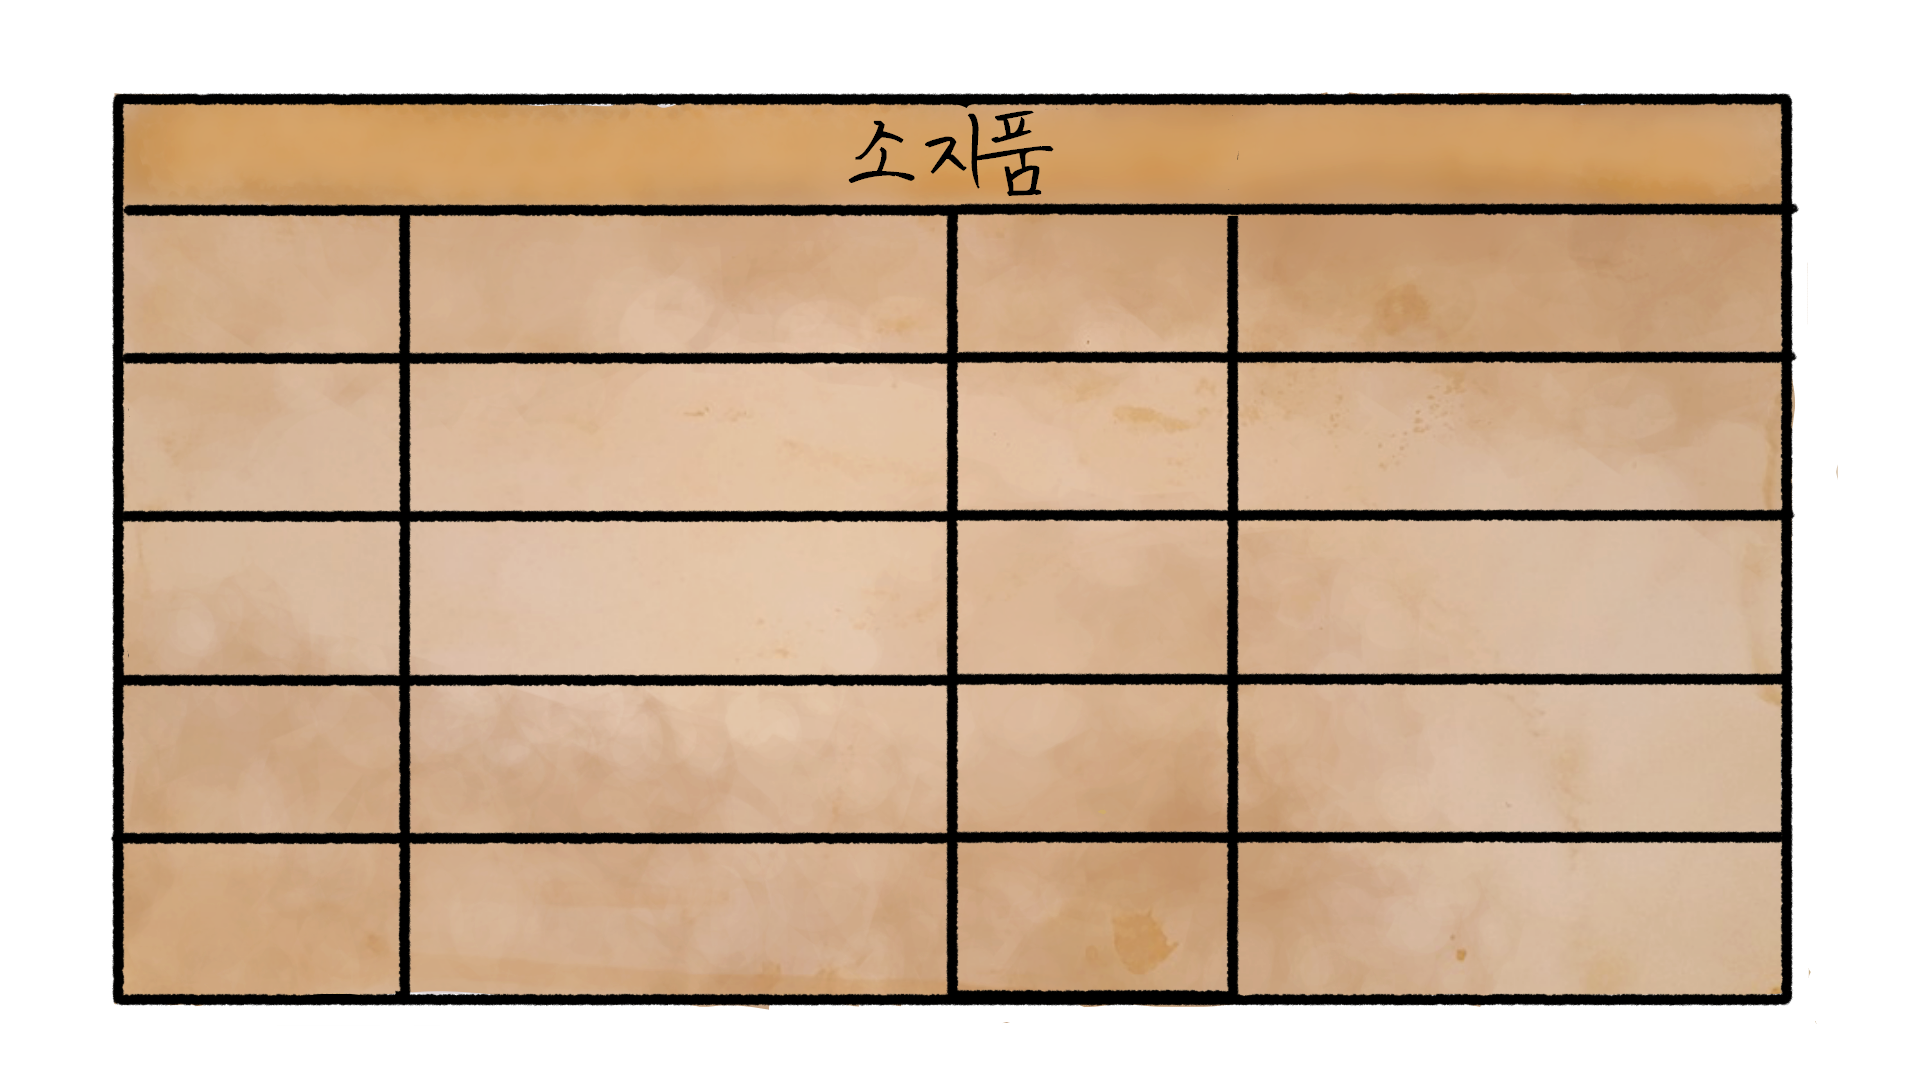 소지품